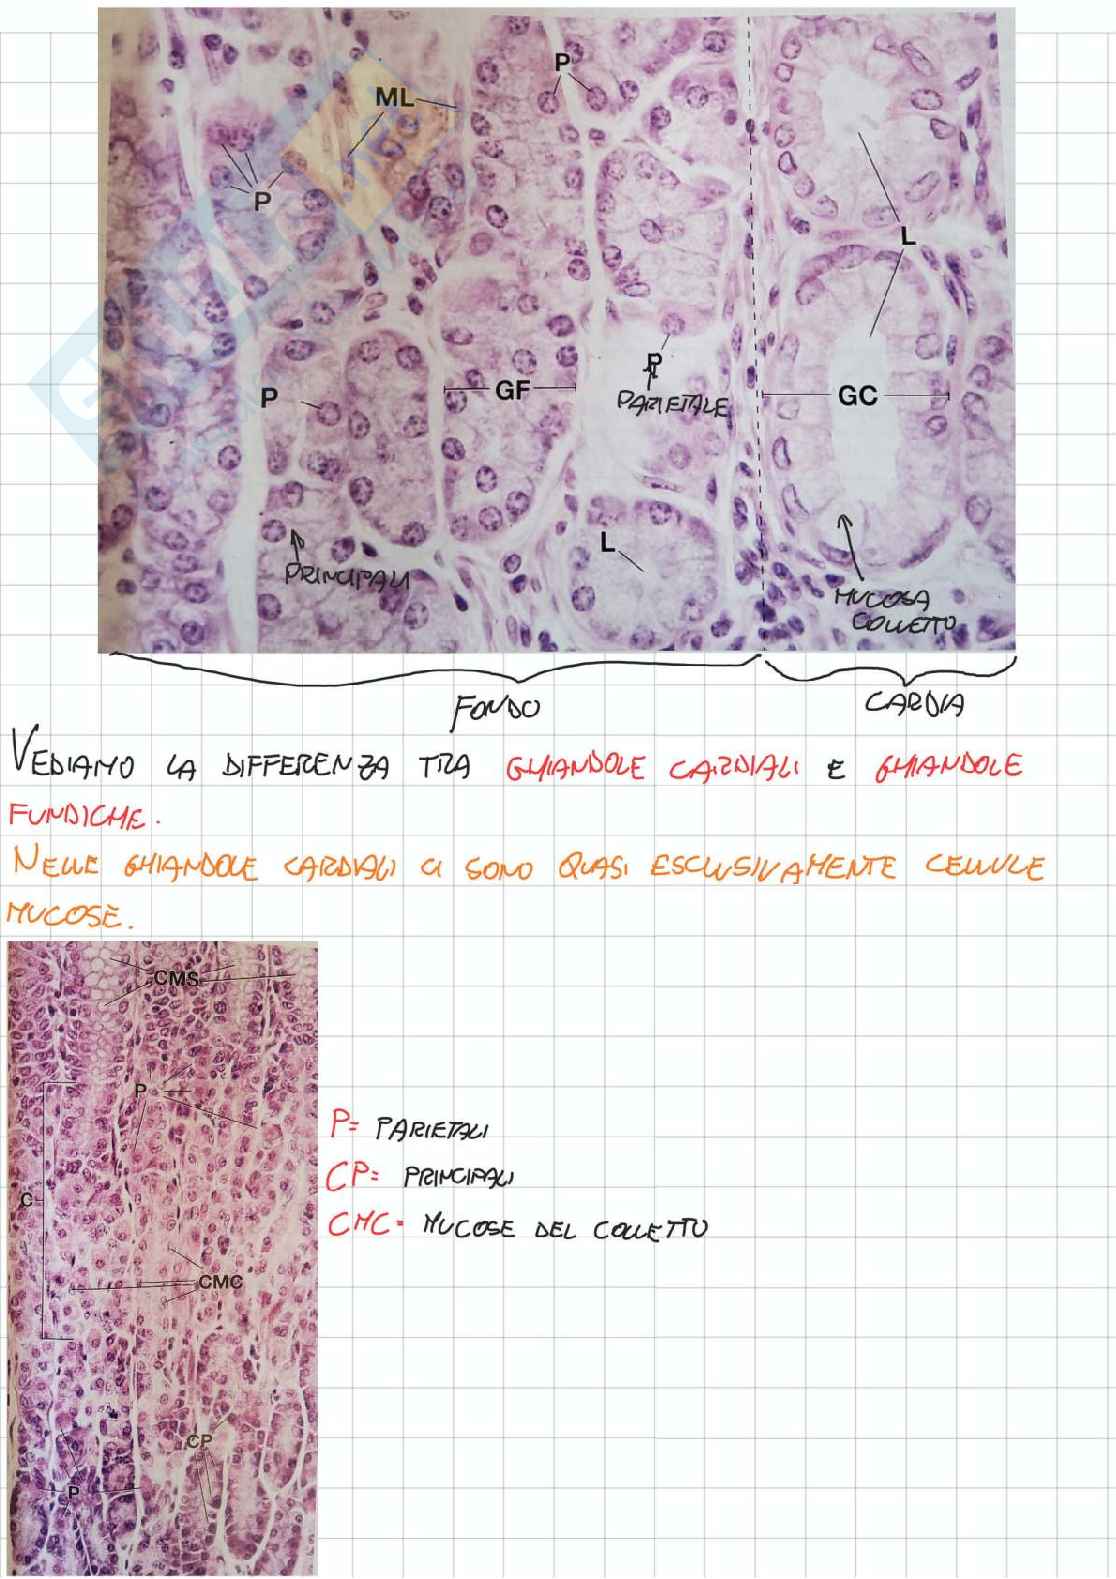 P
ML
P
L
P
GF
P
PARIETALE
GC
L
PRINCIPALI
MUCOSA
COLLETTO
FONDO
CARDIA
VEDIAMO LA DIFFERENZA TRA GHIANDOLE CARDIALI E GHIANDOLE
FUNDICHE.
NELLE GHIANDOLE CARDIALI CI SONO QUASI ESCLUSIVAMENTE CELLULE
MUCOSE.
CMS
P
P= PARIETALI
CP= PRINCIPALI
C
CMC= MUCOSE DEL COLLETTO
CMC
CP
P